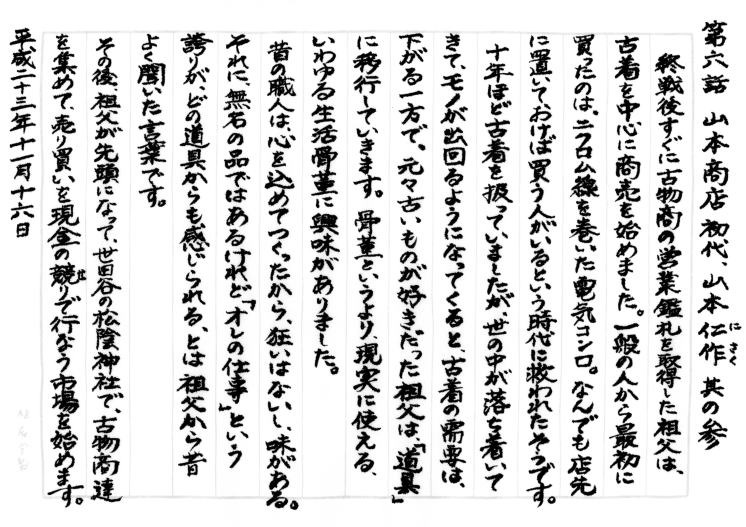 第六話 山本商店 初代、山本仁作 其の参
にさく
終戦後すぐに古物商の営業鑑札を取得した祖父は、
古着を中心に商売を始めました。一般の人から最初に
買ったのは、ニクロム線を巻いた電気コンロ。なんでも店先
に置いておけば買う人がいるという時代に救われたそうです。
十年ほど古着を扱っていましたが、世の中が落ち着いて
きて、モノが出回るようになってくると、古着の需要は、
下がる一方で、元々古いものが好きだった祖父は、「道具」
に移行していきます。骨董というより、現実に使える、
いわゆる生活骨董に興味がありました。
昔の職人は、心を込めてつくったから、狂いはないし、味がある。
それに、無名の品ではあるけれど「オレの仕事」という
誇りが、どの道具からも感じられる、とは祖父から昔
よく聞いた言葉です。
その後、祖父が先頭になって、世田谷の松陰神社で、古物商達
を集めて、売り買いを現金の競りで行なう市場を始めます。
せ
平成二十三年十一月十六日